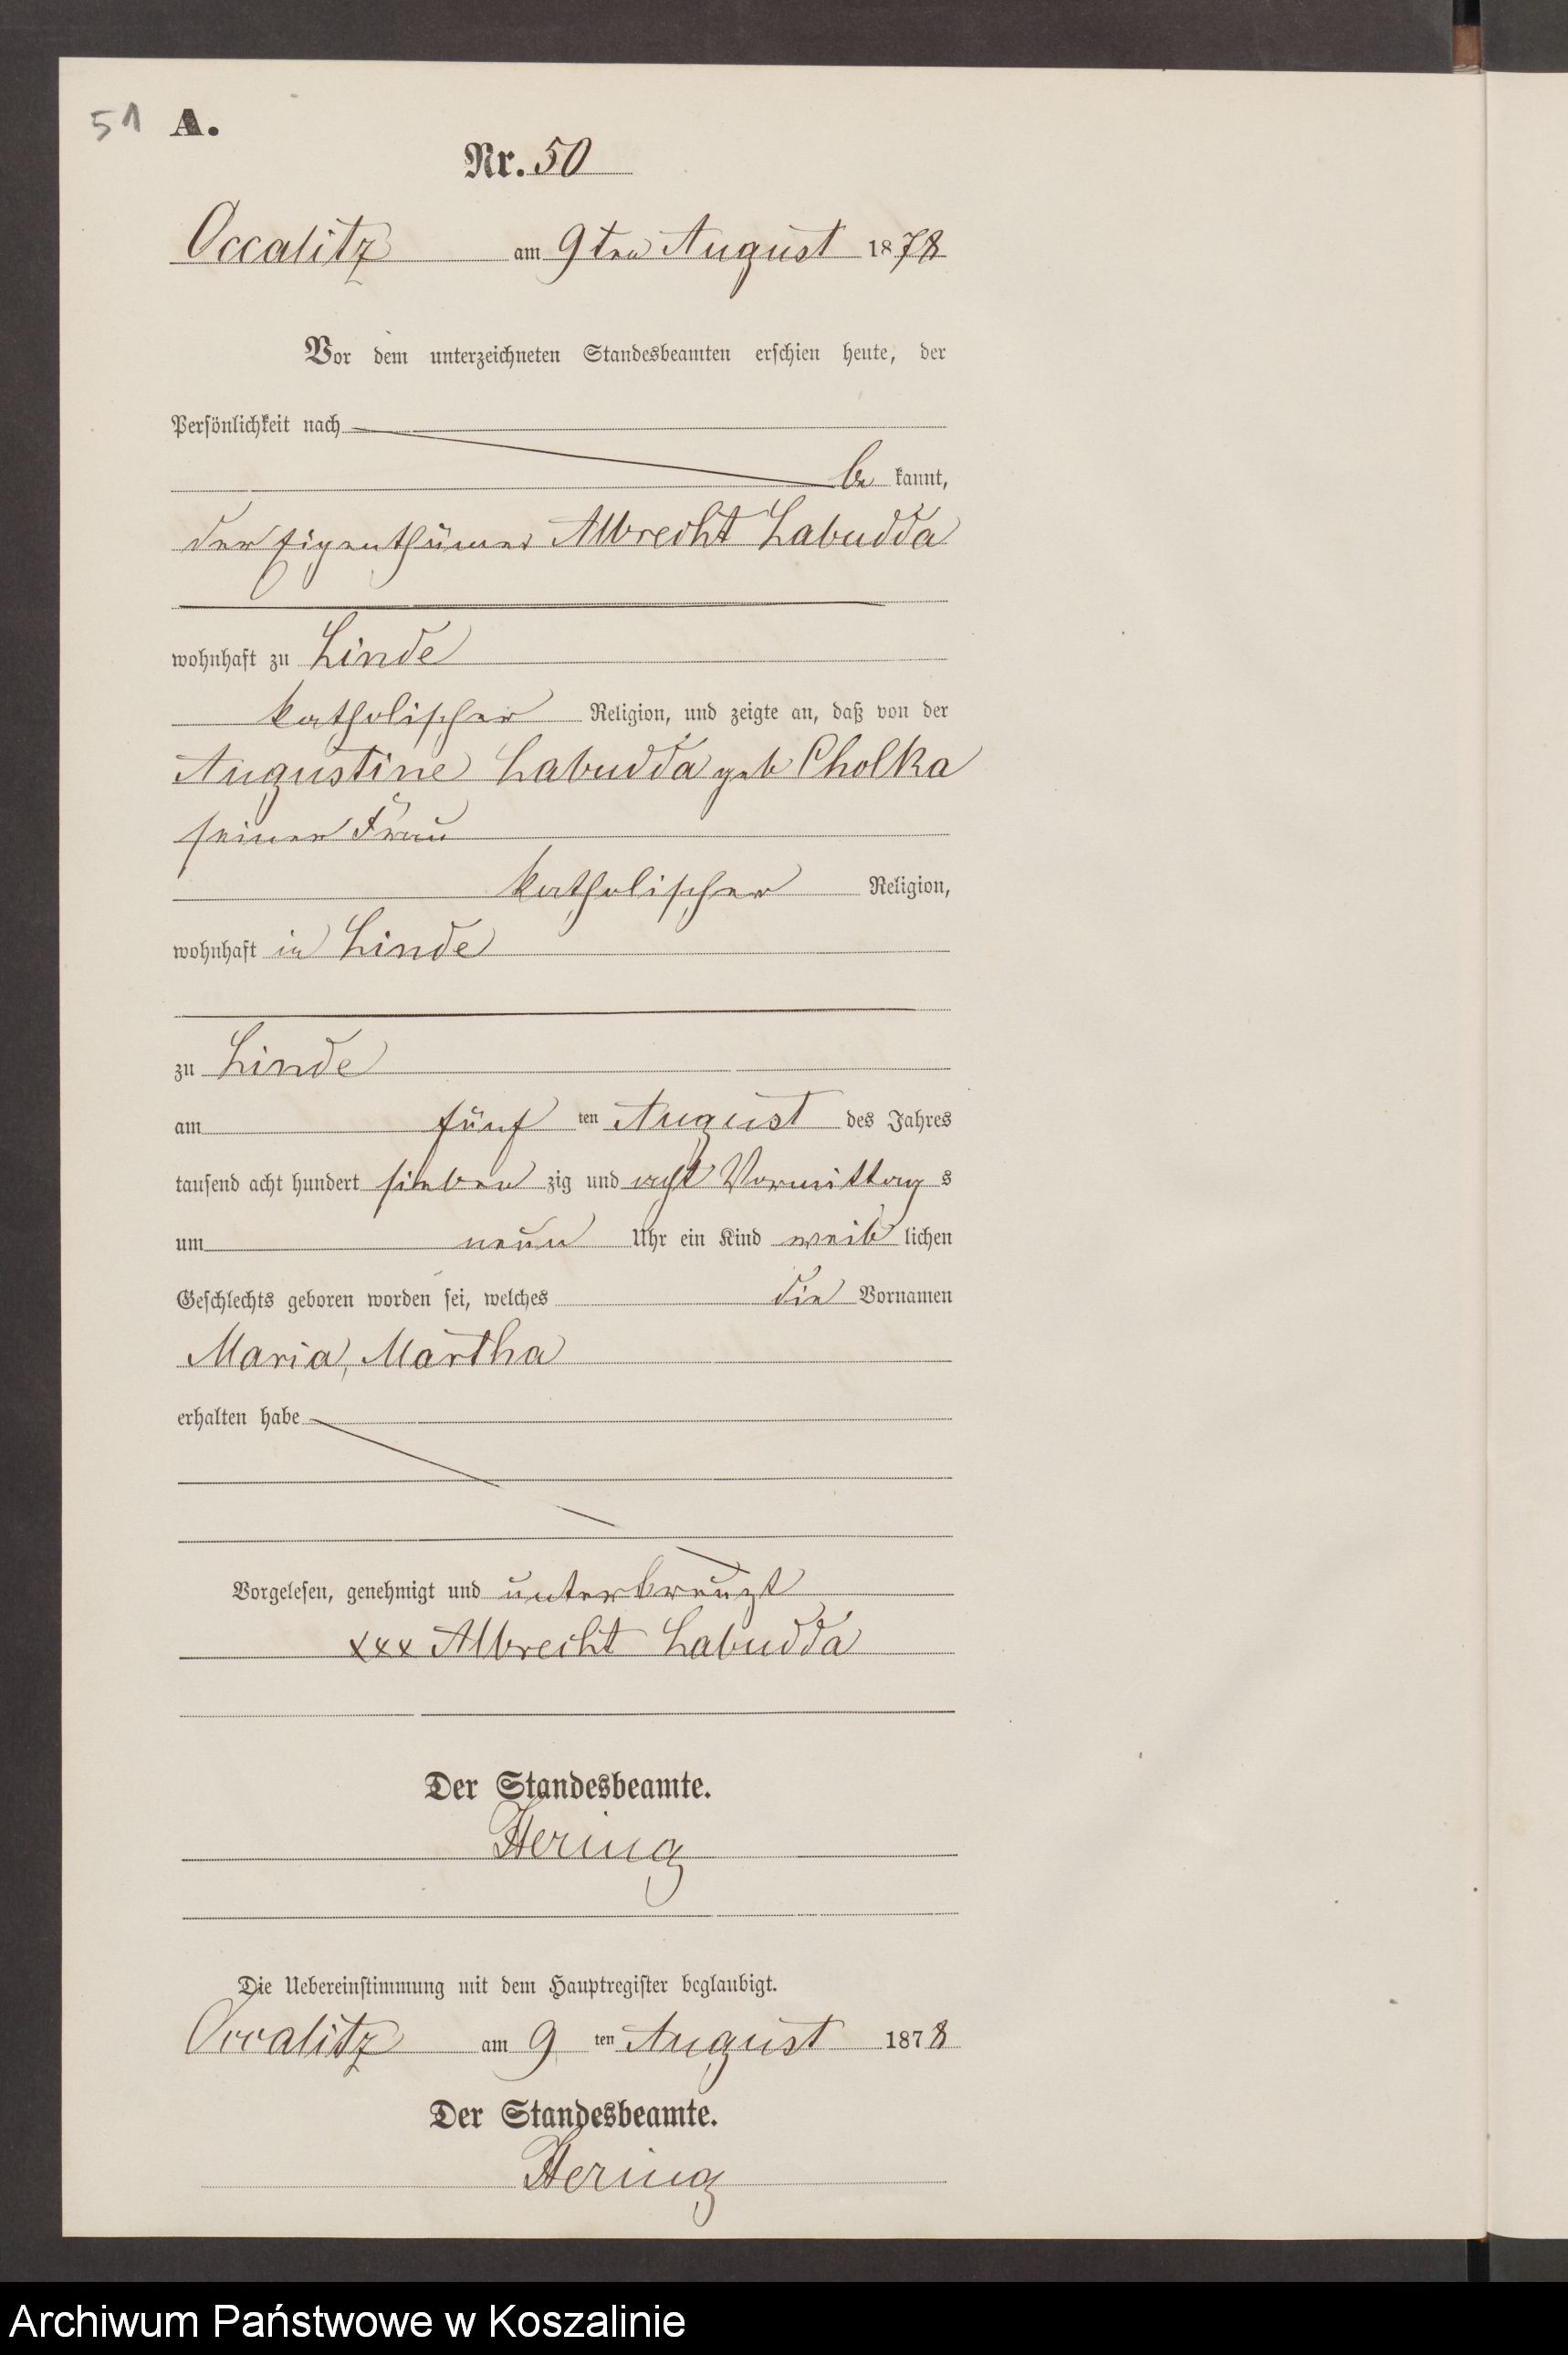 51 A.
Nr. 50
Occalitz am 9ten August 1878
Vor dem unterzeichneten Standesbeamten erschien heute, der
Persönlichkeit nach
be kannt,
der Eigenthümer Albrecht Labudda
wohnhaft zu Linde
katholischer Religion, und zeigte an, daß von der
Augustine Labudda geb Cholka
seiner Frau
katholischer Religion,
wohnhaft in Linde
zu Linde
am fünf ten August des Jahres
tausend acht hundert sieben zig und acht Vormittag s
um neun Uhr ein Kind weib lichen
Geschlechts geboren worden sei, welches die Vornamen
Maria, Martha
erhalten habe
Vorgelesen, genehmigt und unterkreuzt
xxx Albrecht Labudda
Der Standesbeamte.
Hering
Die Uebereinstimmung mit dem Hauptregister beglaubigt.
Occalitz am 9 ten August 1878
Der Standesbeamte.
Hering
Archiwum Państwowe w Koszalinie